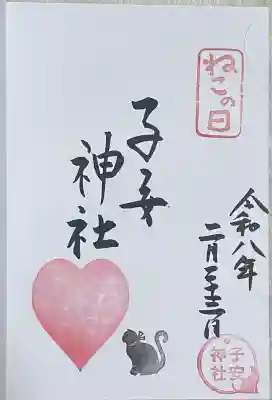 ねこの日
子安
神社
令和八年
二月二十三日
子安
神社